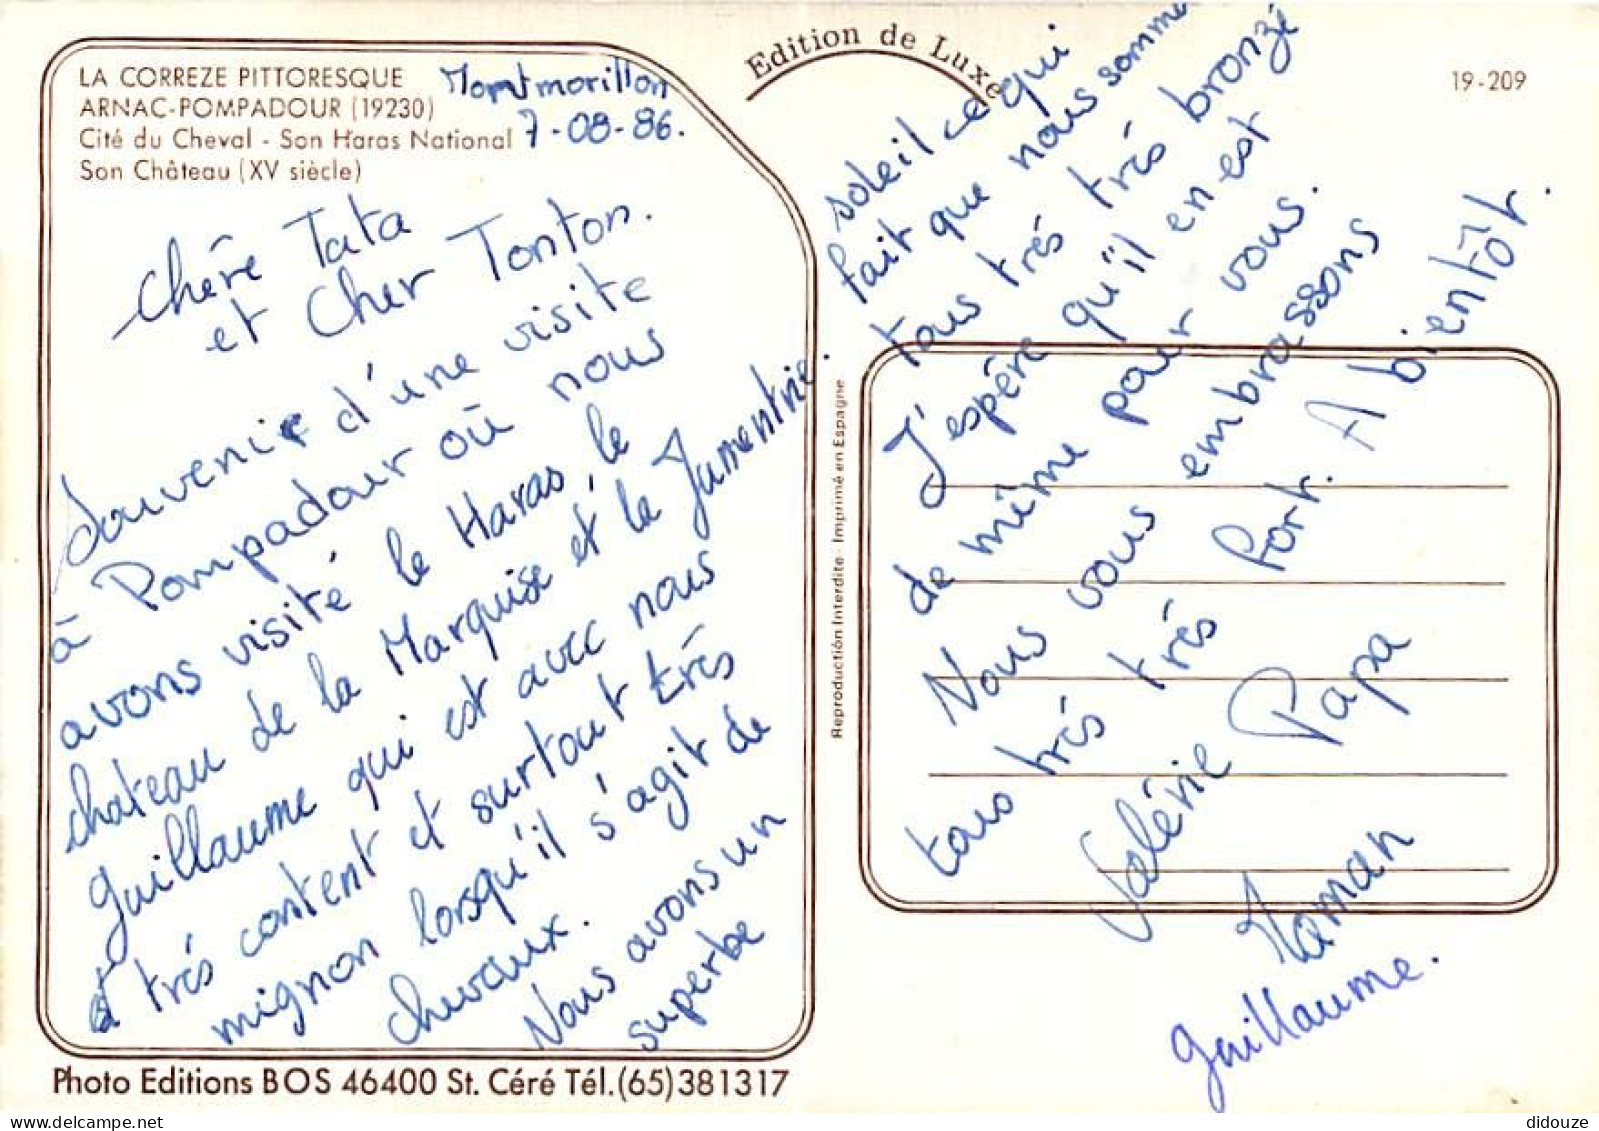 LA CORREZE PITTORESQUE
ARNAC-POMPADOUR (19230)
Cité du Cheval - Son Haras National
Son Château (XV siècle)
Montmorillon
7-08-86.
Chère Tata
et Cher Tonton.
Souvenir d'une visite
à Pompadour où nous
avons visité le Haras, le
chateau de la Marquise et la Jumentrie.
Guillaume qui est avec nous
est très content et surtout très
mignon lorsqu'il s'agit de
chevaux.
Nous avons un
superbe
soleil ce qui
fait que nous sommes
tous très très bronzé
J'espère qu'il en est
de même pour vous.
Nous vous embrassons
tous très très fort. A bientôt.
Valérie Papa
Maman
Guillaume.
Edition de Luxe
19-209
Reproduction Interdite - Imprimé en Espagne
Photo Editions BOS 46400 St. Céré Tél.(65)381317
didouze